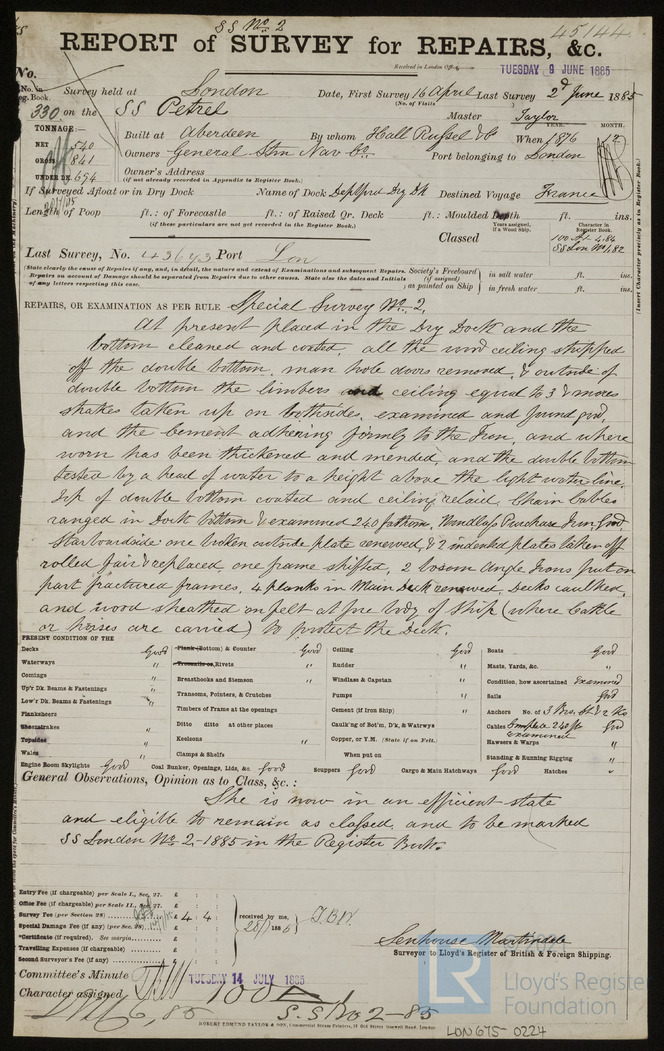 SS No. 2
45144
REPORT of SURVEY for REPAIRS, &c.
Received in London Office,
TUESDAY 9 JUNE 1885
No.
No. in Reg. Book.
Survey held at London Date, First Survey 16 April Last Survey 2d June 1885
(No. of Visits)
330 on the SS Petrel Master Taylor
TONNAGE:—
NET 540
GROSS 841
UNDER DK. 694
Built at Aberdeen By whom Hall Russel & Co When 1876 12
YEAR. MONTH.
Owners General Stm Nav Co. Port belonging to London
Owner's Address
(if not already recorded in Appendix to Register Book.)
If Surveyed Afloat or in Dry Dock Name of Dock Deptford Dry Dk Destined Voyage France
Length of Poop ft.: of Forecastle ft.: of Raised Qr. Deck ft.: Moulded Depth ft. ins.
(if these particulars are not yet recorded in the Register Book.)
Years assigned, if a Wood Ship.
Character in Register Book.
Classed 100 A1 4.84
SS Lon No 1.82
Last Survey, No. 43643 Port Lon
(State clearly the cause of Repairs if any, and, in detail, the nature and extent of Examinations and subsequent Repairs. Repairs on account of Damage should be separated from Repairs due to other causes. State also the dates and Initials of any letters respecting this case.
Society's Freeboard (if assigned) ; as painted on Ship
in salt water ft. ins.
in fresh water ft. ins.
(Insert Character precisely as in Register Book.)
REPAIRS, OR EXAMINATION AS PER RULE Special Survey No. 2.
At present placed in the Dry Dock and the
bottom cleaned and coated, all the wood ceiling stripped
off the double bottom, man hole doors removed, & outside of
double bottom the limbers and ceiling equal to 3 & more
strakes taken up on bothsides, examined and found good
and the cement adhering firmly to the Iron, and where
worn has been thickened and mended, and the double bottom
tested by a head of water to a height above the light water line,
Top of double bottom coated and ceiling relaid, Chain Cables
ranged in Dock bottom & examined 240 fathoms, Windlass Purchase Iron Good.
Starboardside one broken outside plate renewed, & 2 indented plates taken off
rolled fair & replaced, one frame shifted, 2 bosom Angle Irons put on
part fractured frames, 4 planks in Main Deck renewed, Decks caulked,
and wood sheathed on felt at fore body of ship (where cattle
or horses are carried) to protect the Deck.
PRESENT CONDITION OF THE
Decks Good
Waterways "
Comings "
Up'r Dk. Beams & Fastenings "
Low'r Dk. Beams & Fastenings "
Planksheers
Sheerstrakes "
Topsides "
Wales "
Engine Room Skylights Good
Plank (Bottom) & Counter Good
Treenails or Rivets "
Breasthooks and Stemson "
Transoms, Pointers, & Crutches
Timbers of Frame at the openings
Ditto ditto at other places
Keelsons "
Clamps & Shelfs
Coal Bunker, Openings, Lids, &c. Good
Ceiling Good
Rudder "
Windlass & Capstan "
Pumps "
Cement (if Iron Ship) "
Caulk'ng of Bot'm, D'k, & Watrwys "
Copper, or Y.M. (State if on Felt.)
When put on
Scuppers Good Cargo & Main Hatchways Good
Boats Good
Masts, Yards, &c. "
Condition, how ascertained Examined
Sails Good
Anchors No. of 3 Brs, St & 2 Ks
Cables Complete 240 fs Good
Examined
Hawsers & Warps "
Standing & Running Rigging "
Hatches "
General Observations, Opinion as to Class, &c. :
She is now in an efficient state
and eligible to remain as classed, and to be marked
SS London No. 2,-1885 in the Register Book.
Entry Fee (if chargeable) per Scale I., Sec. 27. £ : :
Office Fee (if chargeable) per Scale II., Sec. 27. £ : :
Survey Fee (per Section 28) £ 4 : 4 :
Special Damage Fee (if any) (per Sec. 28) £ : :
*Certificate (if required). See margin £ : :
Travelling Expenses (if chargeable) £ : :
Second Surveyor's Fee (if any) £ : :
received by me,
Senhouse Martindale
Surveyor to Lloyd's Register of British & Foreign Shipping.
Committee's Minute TUESDAY 14 JULY 1885
Character assigned 100 A
S.S No 2-85
6,85
ROBERT EDMUND TAYLOR & SON, Commercial Steam Printers, 19 Old Street Goswell Road, London
LR Lloyd's Register
Foundation
LON675-0224